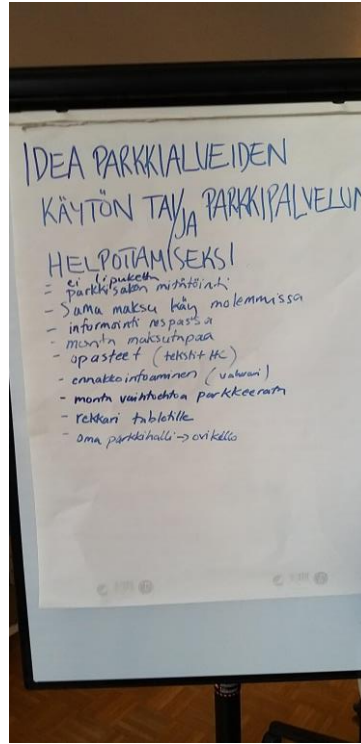 IDEA PARKKIALUEIDEN
KÄYTÖN TAI/JA PARKKIPALVELUN
HELPOTTAMISEKSI
- ei lipuketta
parkkisakon mitätöinti
- Sama maksu käy molemmissa
- informointi respassa
- monta maksutapaa
- opasteet (tekstit HC)
- ennakkoinfoaminen
- monta vaihtoehtoa parkkeerata
- rekkari tabletille
- oma parkkihalli → ovikello